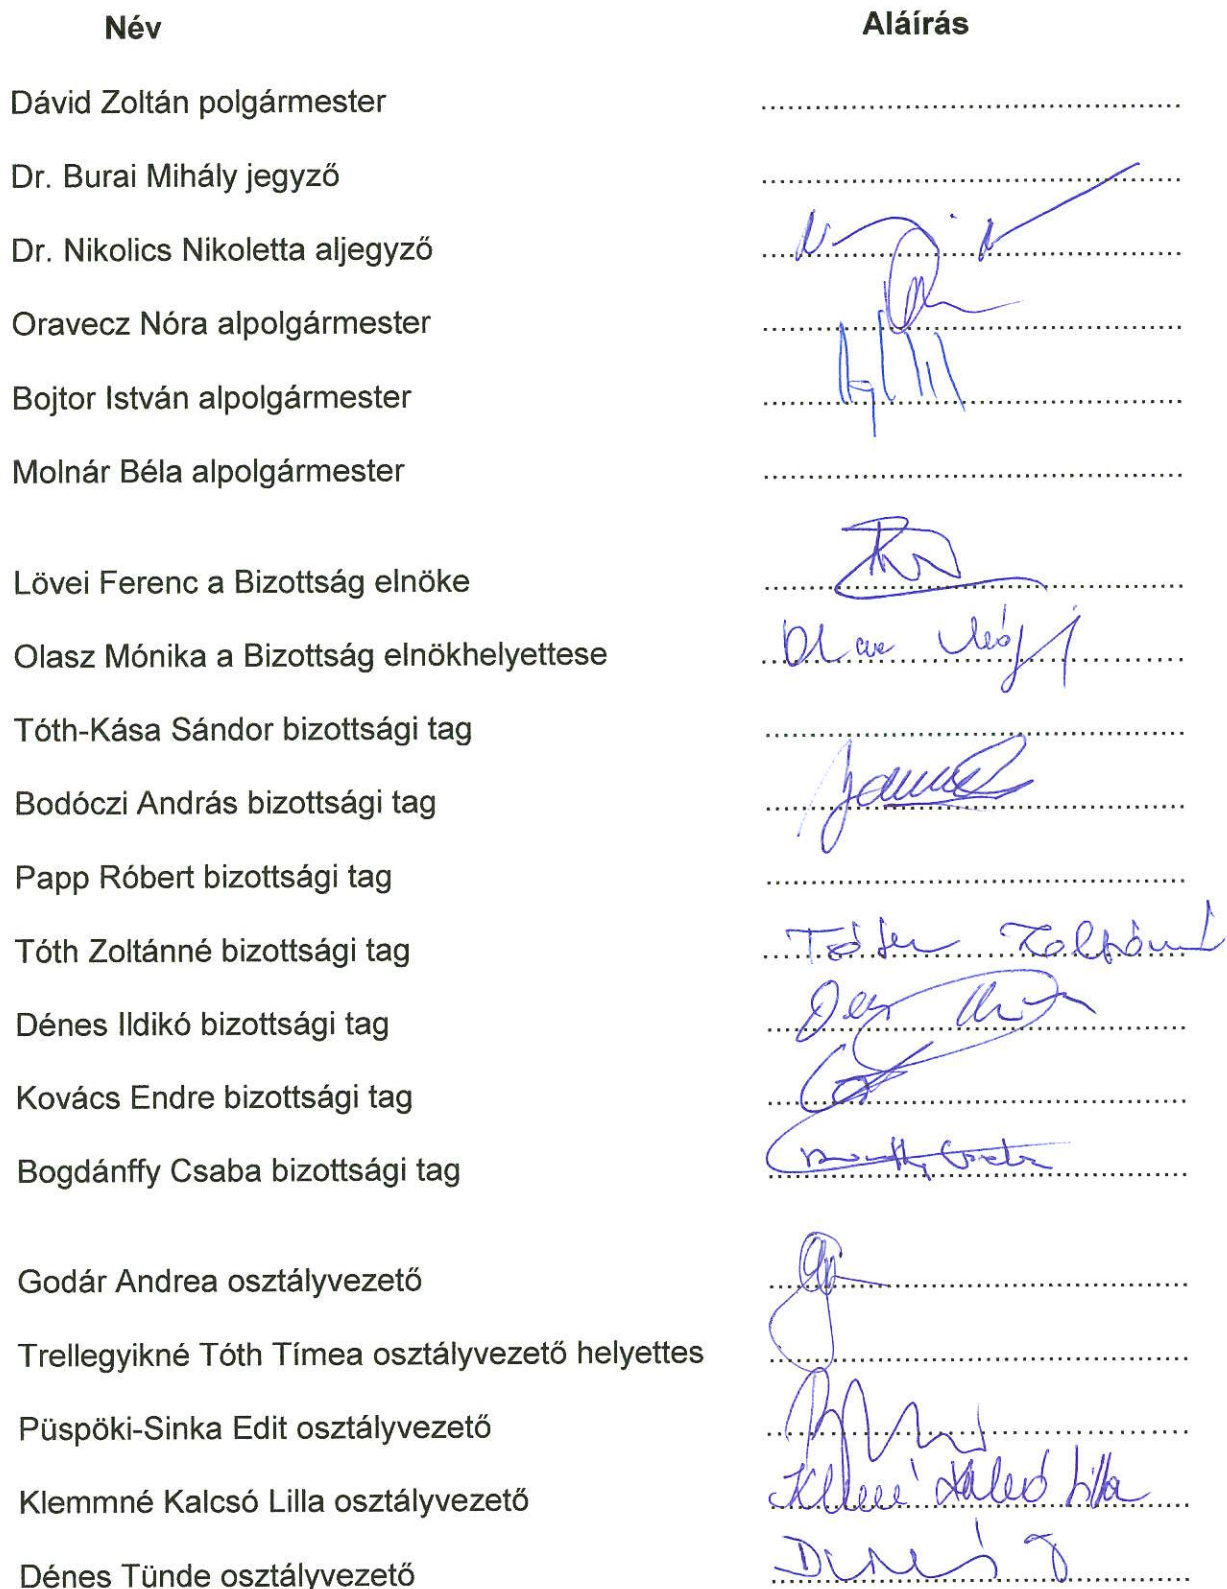 Név Aláírás
Dávid Zoltán polgármester ................................................
Dr. Burai Mihály jegyző ................................................
Dr. Nikolics Nikoletta aljegyző ................................................
Oravecz Nóra alpolgármester ................................................
Bojtor István alpolgármester ................................................
Molnár Béla alpolgármester ................................................
Lövei Ferenc a Bizottság elnöke ................................................
Olasz Mónika a Bizottság elnökhelyettese ................................................
Tóth-Kása Sándor bizottsági tag ................................................
Bodóczi András bizottsági tag ................................................
Papp Róbert bizottsági tag ................................................
Tóth Zoltánné bizottsági tag Tóth Zoltánné
Dénes Ildikó bizottsági tag ................................................
Kovács Endre bizottsági tag ................................................
Bogdánffy Csaba bizottsági tag ................................................
Godár Andrea osztályvezető ................................................
Trellegyikné Tóth Tímea osztályvezető helyettes ................................................
Püspöki-Sinka Edit osztályvezető ................................................
Klemmné Kalcsó Lilla osztályvezető Klemmné Kalcsó Lilla
Dénes Tünde osztályvezető ................................................